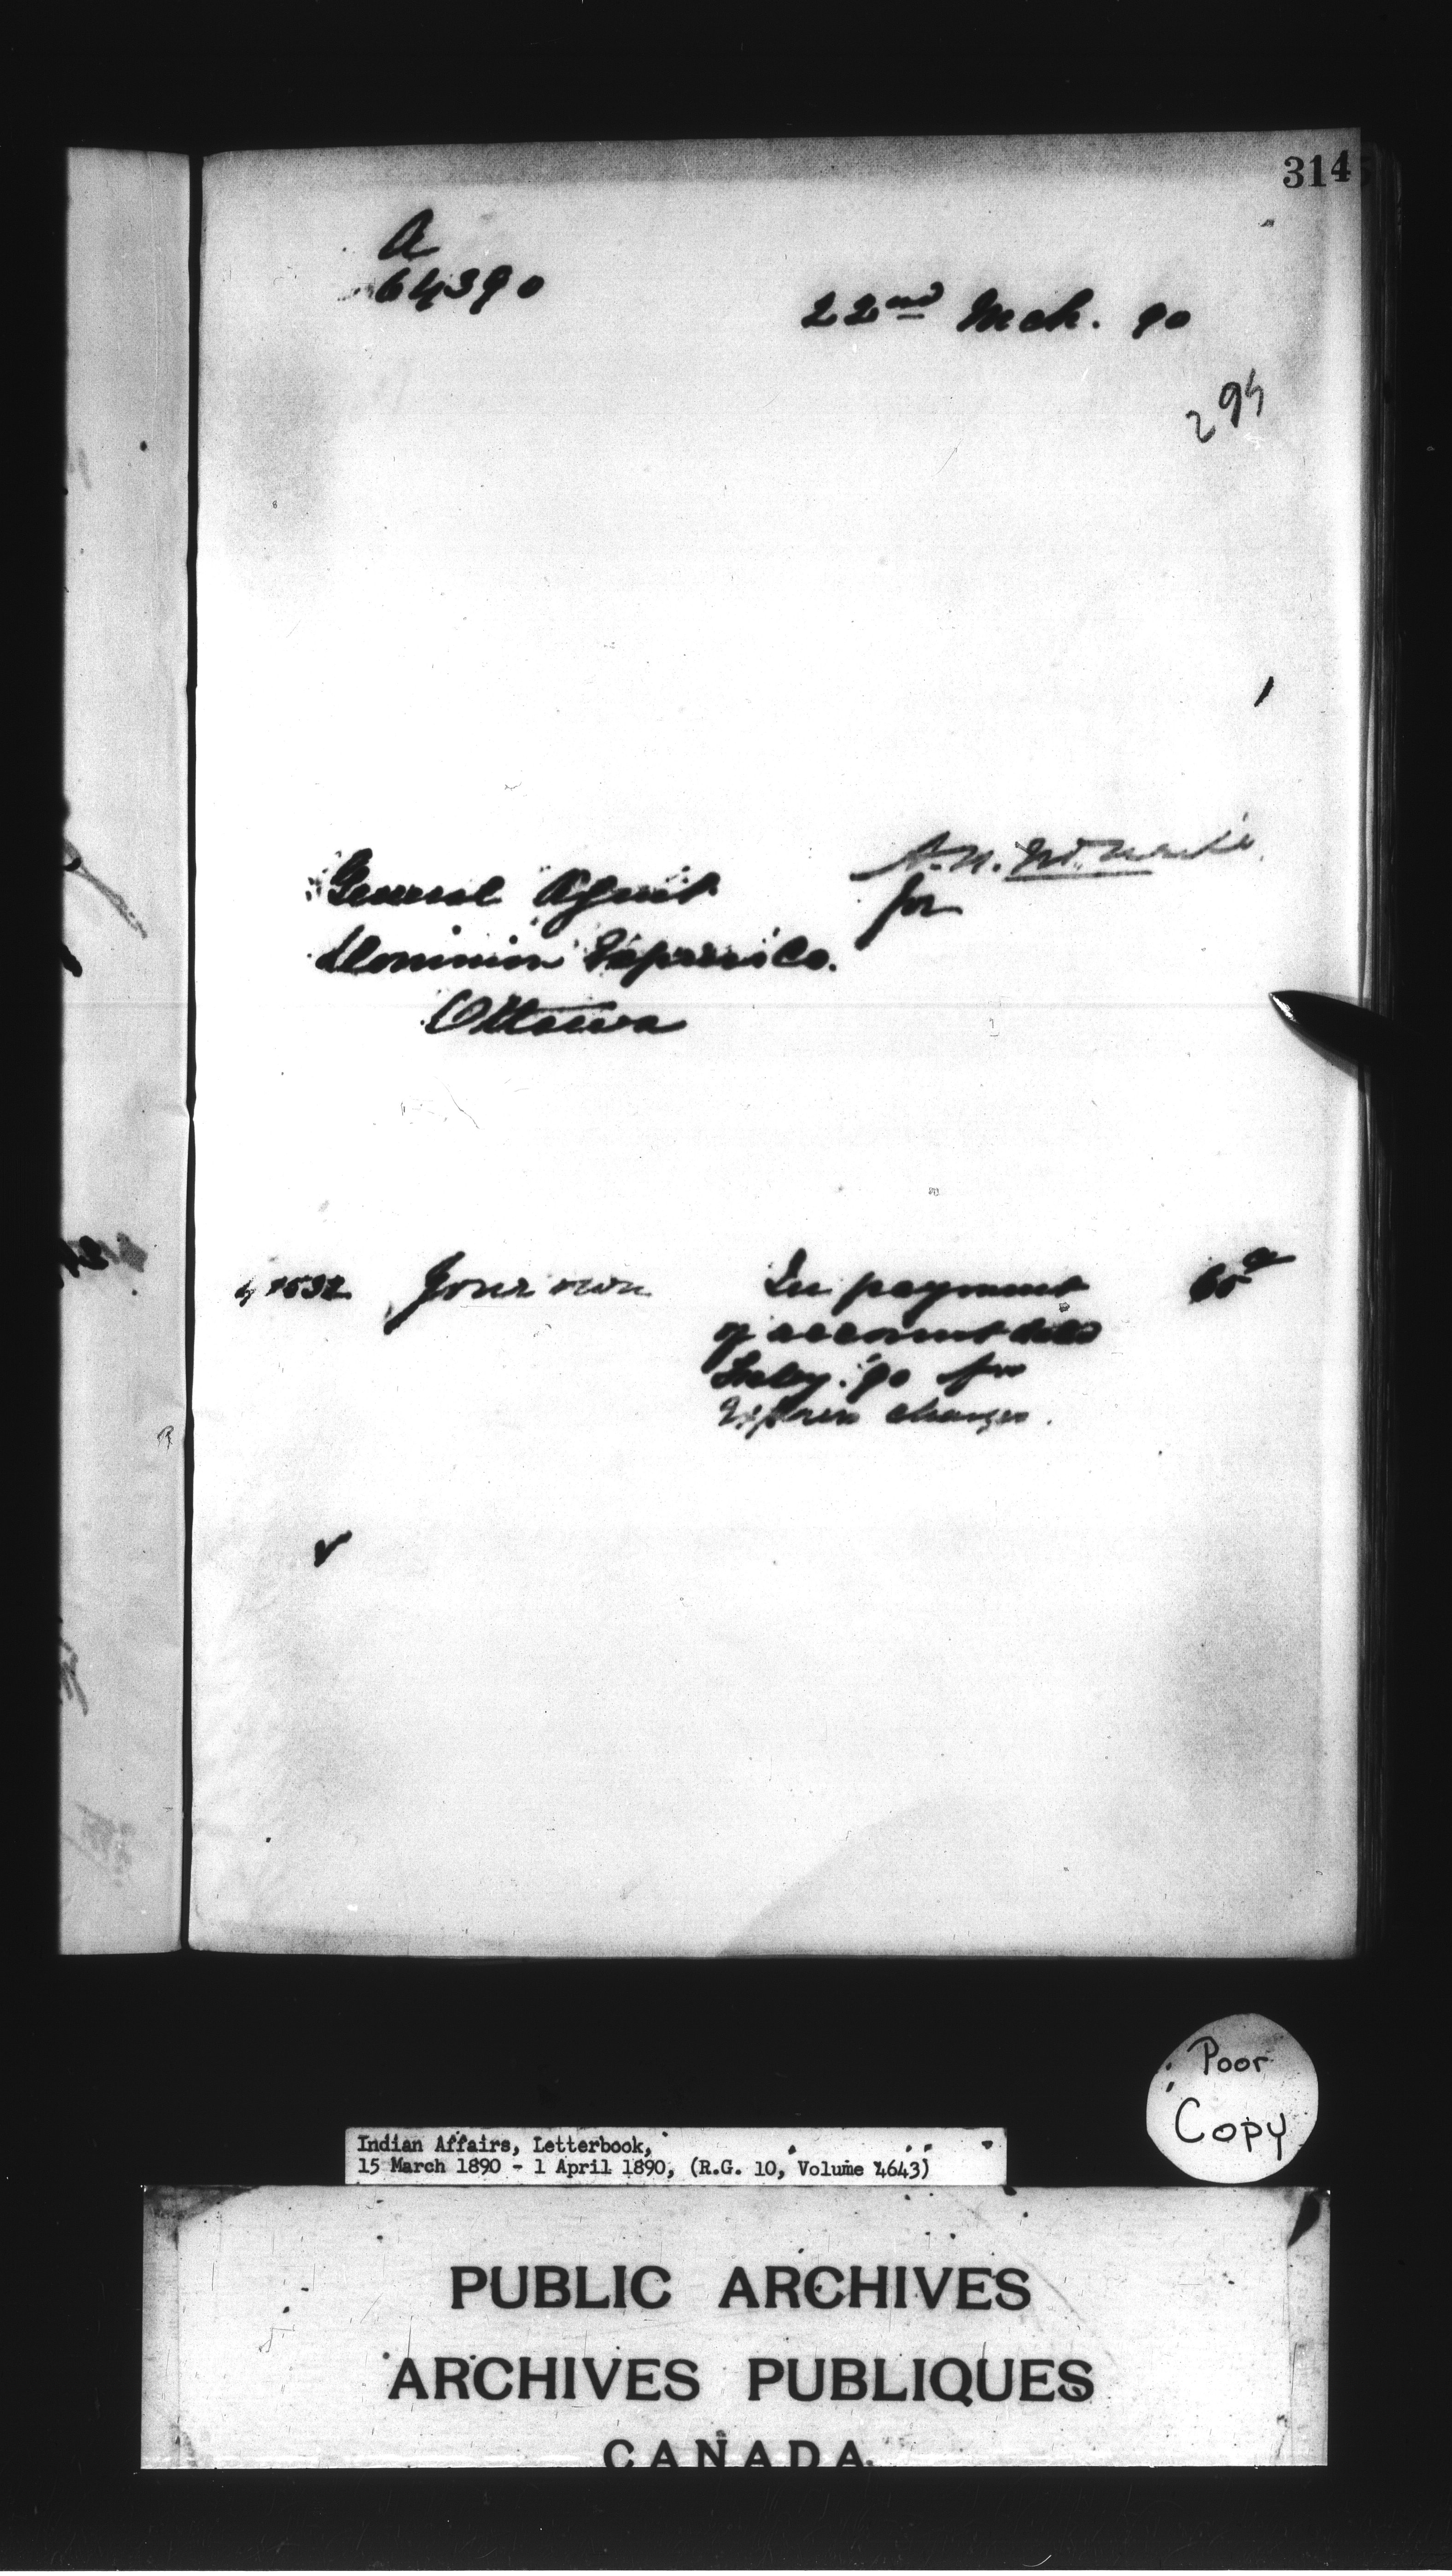 314
A
64390
22nd Mch. 90
294
General Agent
Dominion Express Co.
Ottawa
A. N. McNeill
for
Your own
In payment
of account
Feby. 90 for
Express charges.
Poor
Copy
Indian Affairs, Letterbook,
15 March 1890 - 1 April 1890, (R.G. 10, Volume 4643)
PUBLIC ARCHIVES
ARCHIVES PUBLIQUES
CANADA